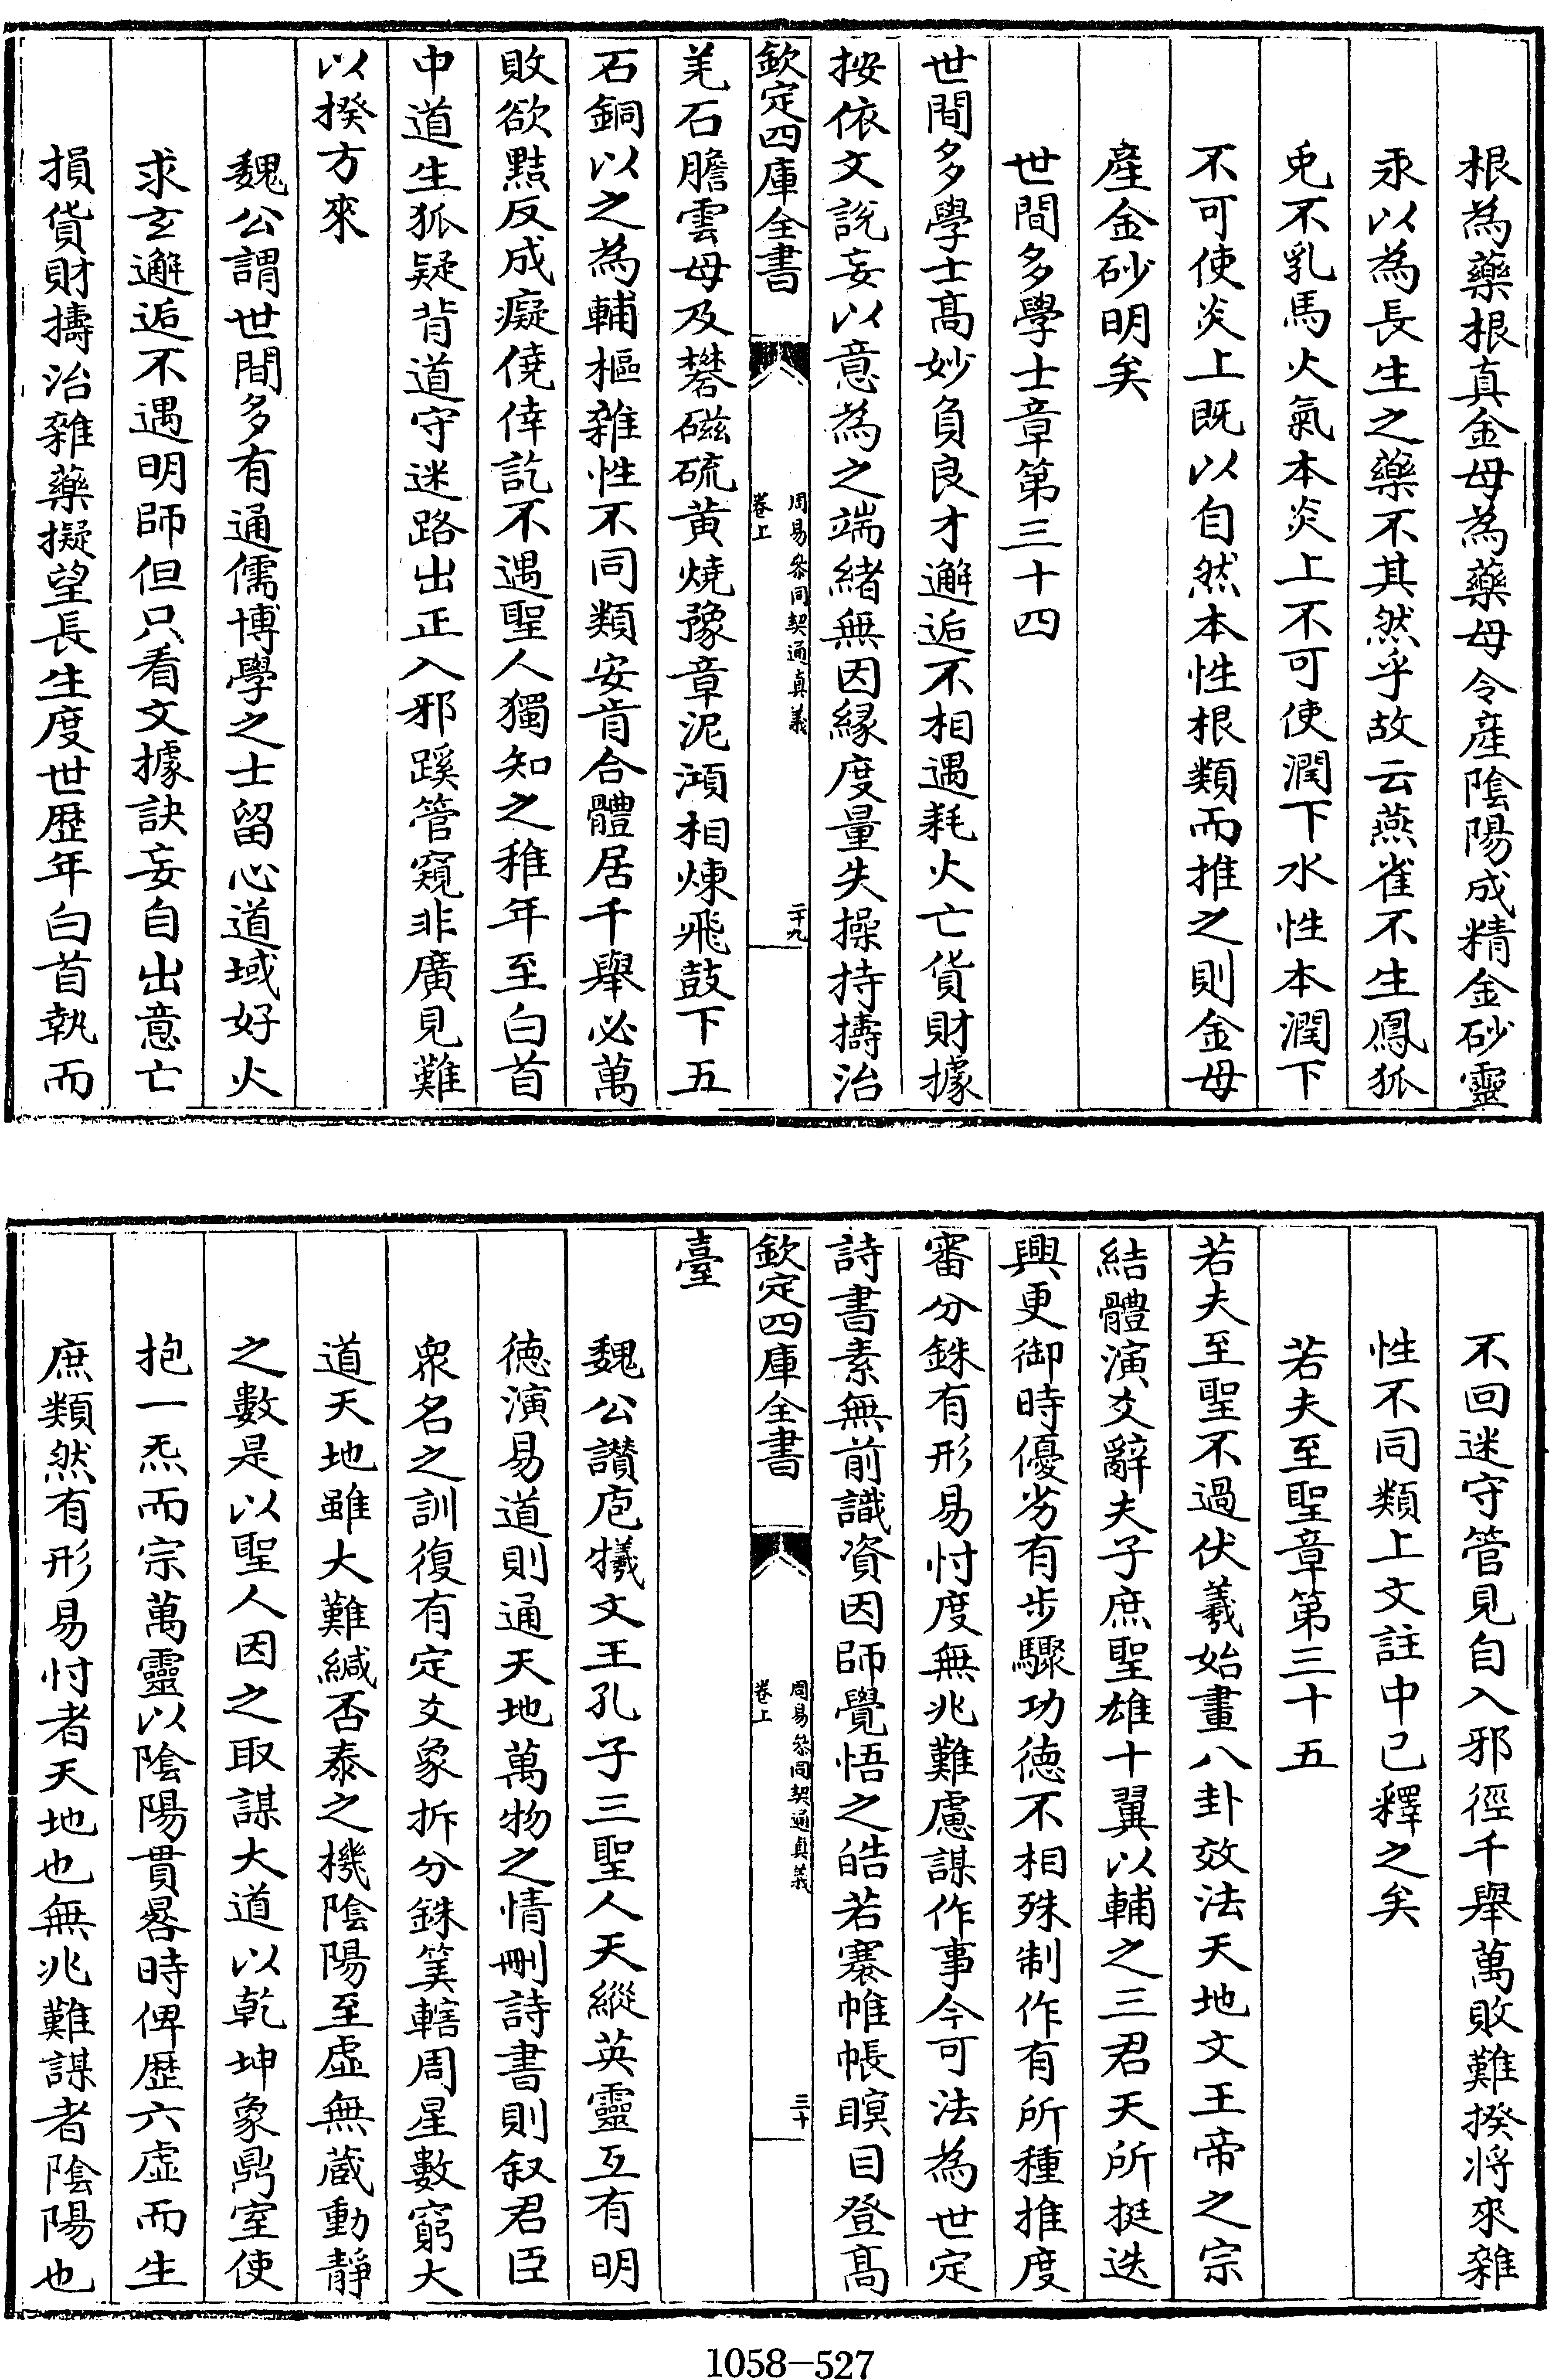 根為藥根真金母為藥母令產隂陽成精金砂靈
汞以為長生之藥不其然乎故云燕雀不生鳳狐
兎不乳馬火氣本炎上不可使潤下水性本潤下
不可使炎上既以自然本性根類而推之則金母
產金砂明矣
世間多學士章第三十四
世間多學士髙妙負良才邂逅不相遇耗火亡貨財據
按依文說妄以意為之端緒無因縁度量失操持擣治
欽定四庫全書
周易叅同契通真義
卷上
二十九
羌石膽雲母及礬磁硫黄燒豫章泥澒相煉飛鼓下五
石銅以之為輔樞雜性不同類安肯合體居千舉必萬
敗欲黠反成癡僥倖訖不遇聖人獨知之稚年至白首
中道生狐疑背道守迷路出正入邪蹊管窺非廣見難
以揆方來
魏公謂世間多有通儒博學之士留心道域好火
求玄邂逅不遇明師但只看文據訣妄自出意亡
損貨財擣治雜藥擬望長生度世歴年白首執而
不回迷守管見自入邪徑千舉萬敗難揆將來雜
性不同類上文註中已釋之矣
若夫至聖章第三十五
若夫至聖不過伏羲始畫八卦效法天地文王帝之宗
結體演爻辭夫子庶聖雄十翼以輔之三君天所挺迭
興更御時優劣有步驟功徳不相殊制作有所種推度
審分銖有形易忖度無兆難慮謀作事今可法為世定
詩書素無前識資因師覺悟之皓若褰帷帳瞑目登髙
欽定四庫全書
周易叅同契通真義
卷上
三十
臺
魏公讚庖犧文王孔子三聖人天縱英靈互有明
徳演易道則通天地萬物之情刪詩書則叙君臣
衆名之訓復有定爻象拆分銖筭轄周星數窮大
道天地雖大難緘否泰之機隂陽至虛無蔵動靜
之數是以聖人因之取謀大道以乾坤象鼎室使
抱一炁而宗萬靈以隂陽貫晷時俾歴六虛而生
庶類然有形易忖者天地也無兆難謀者隂陽也
1058-527